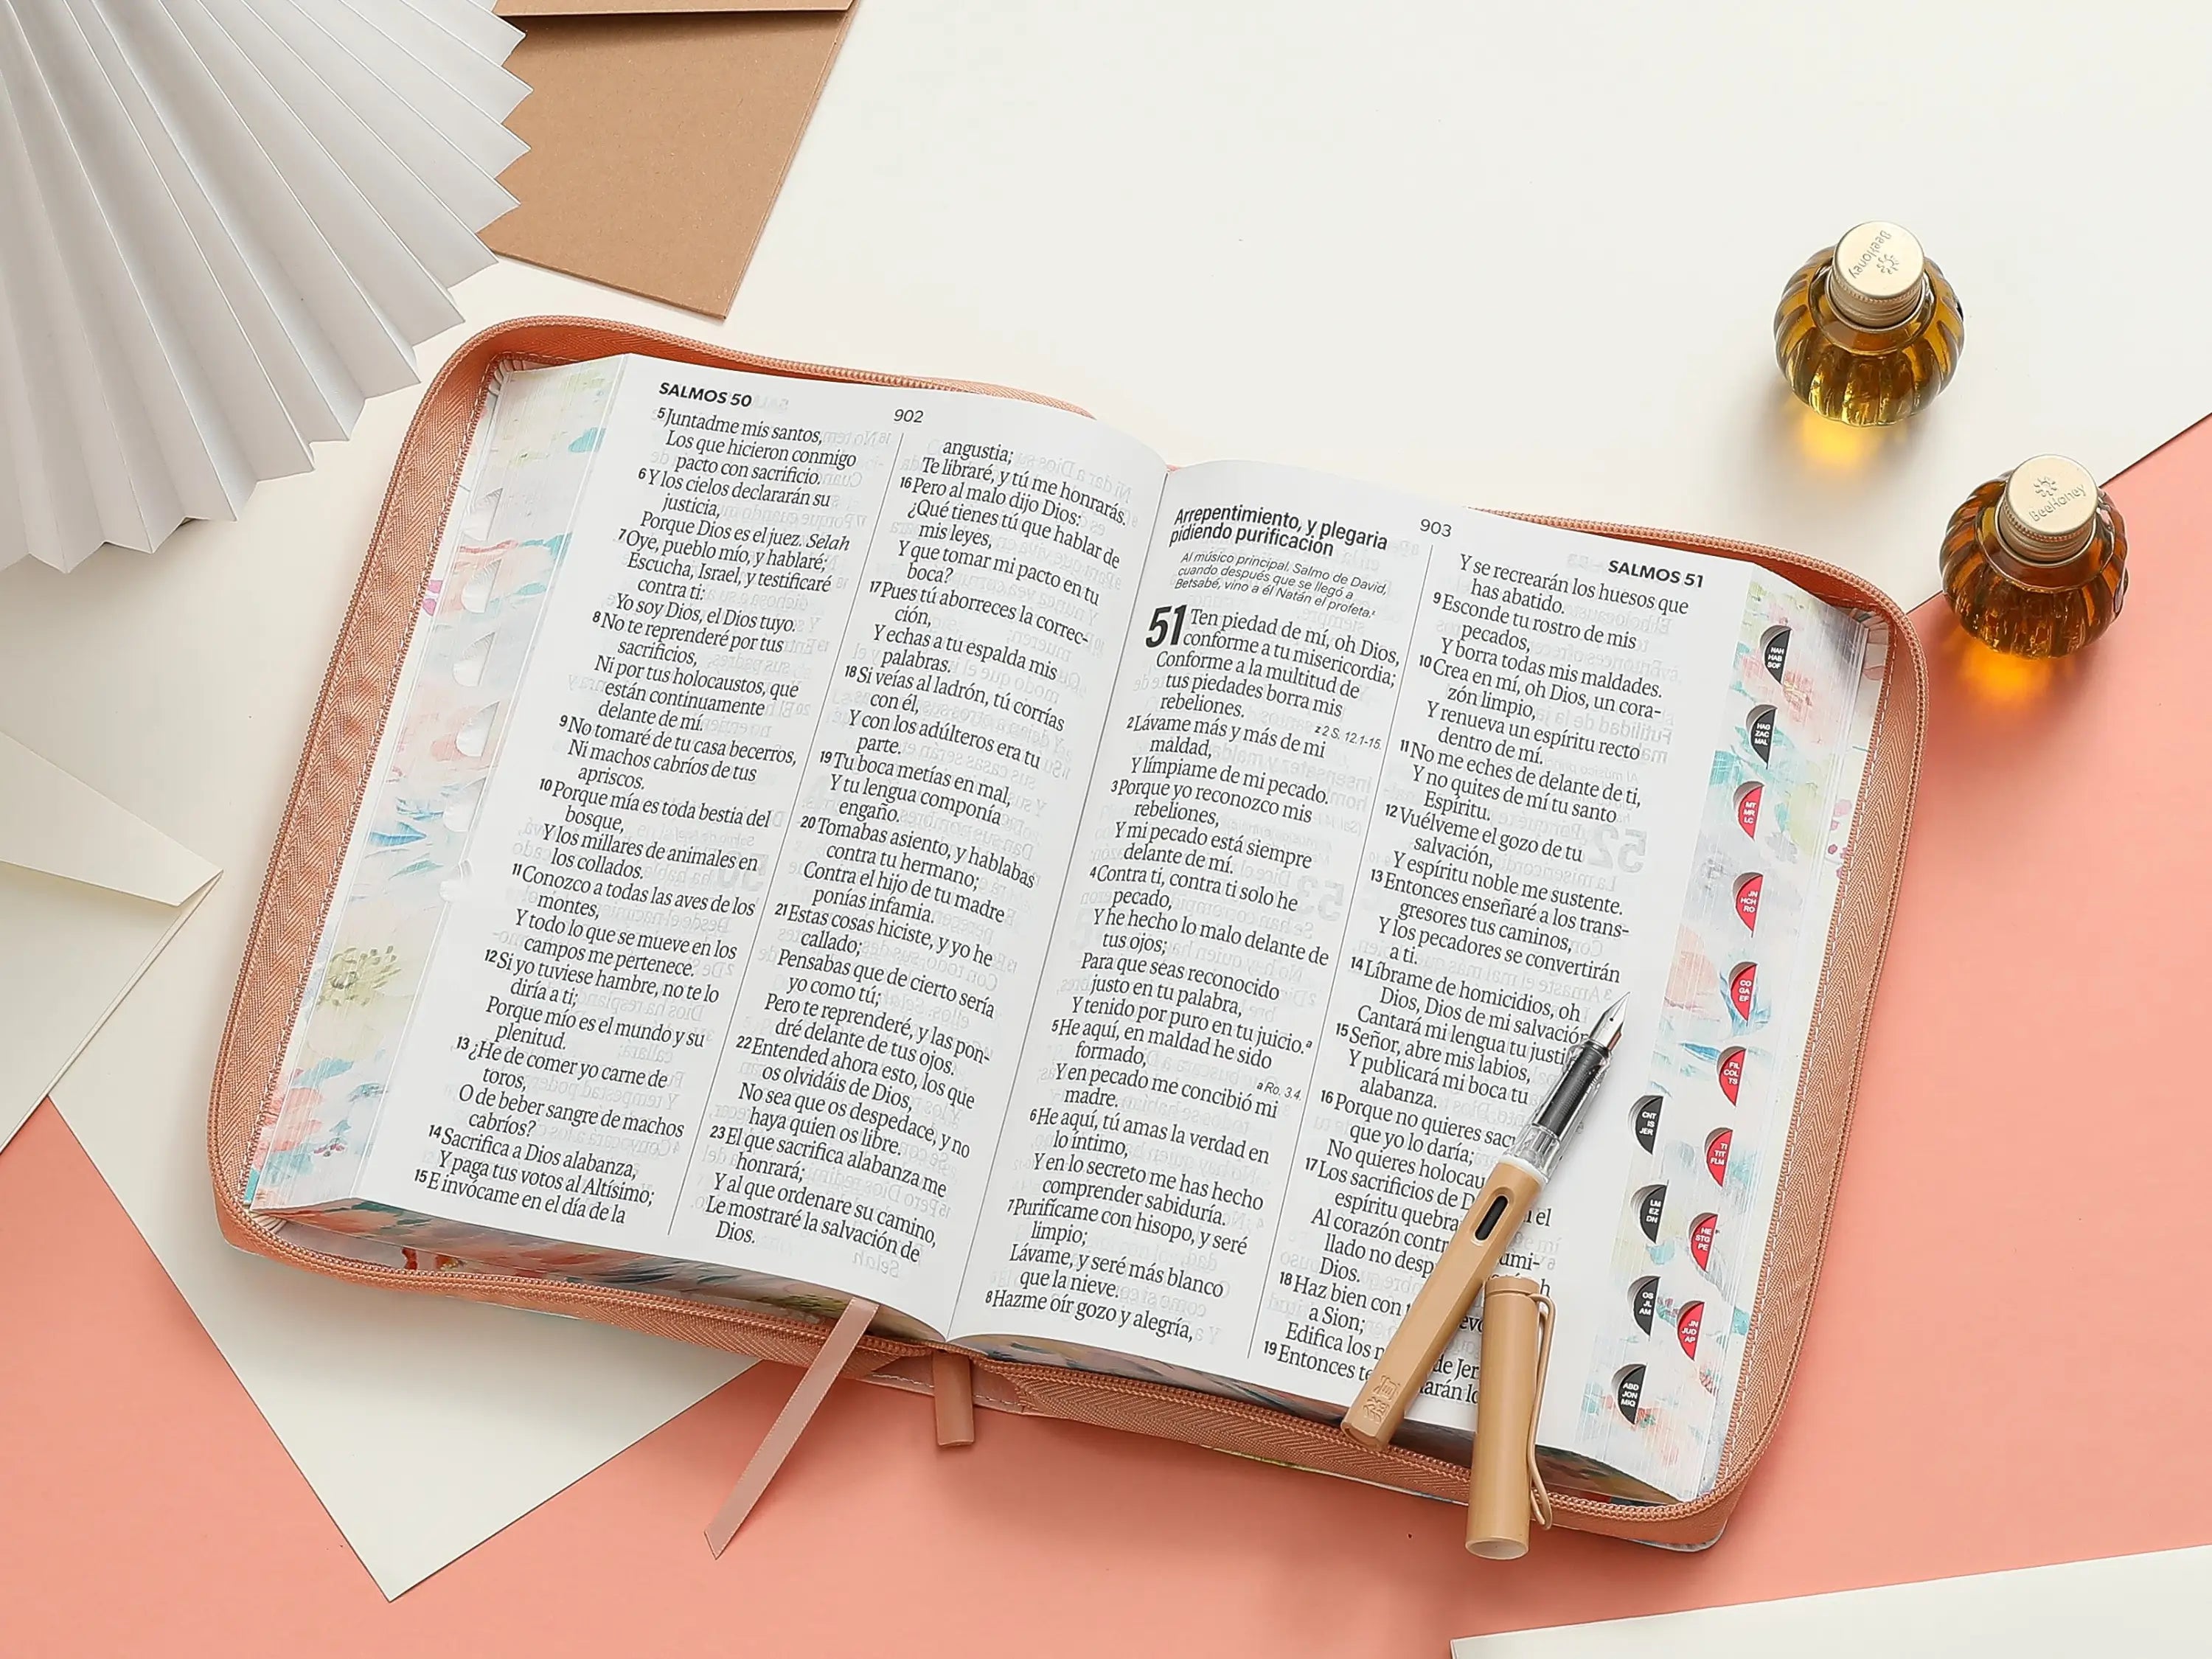 SALMOS 50
902
5 Juntadme mis santos,
Los que hicieron conmigo
pacto con sacrificio.
6 Y los cielos declararán su
justicia,
Porque Dios es el juez. Selah
7 Oye, pueblo mío, y hablaré;
Escucha, Israel, y testificaré
contra ti:
Yo soy Dios, el Dios tuyo.
8 No te reprenderé por tus
sacrificios,
Ni por tus holocaustos, que
están continuamente
delante de mí.
9 No tomaré de tu casa becerros,
Ni machos cabríos de tus
apriscos.
10 Porque mía es toda bestia del
bosque,
Y los millares de animales en
los collados.
11 Conozco a todas las aves de los
montes,
Y todo lo que se mueve en los
campos me pertenece.
12 Si yo tuviese hambre, no te lo
diría a ti;
Porque mío es el mundo y su
plenitud.
13 ¿He de comer yo carne de
toros,
O de beber sangre de machos
cabríos?
14 Sacrifica a Dios alabanza,
Y paga tus votos al Altísimo;
15 E invócame en el día de la
angustia;
Te libraré, y tú me honrarás.
16 Pero al malo dijo Dios:
¿Qué tienes tú que hablar de
mis leyes,
Y que tomar mi pacto en tu
boca?
17 Pues tú aborreces la correc-
ción,
Y echas a tu espalda mis
palabras.
18 Si veías al ladrón, tú corrías
con él,
Y con los adúlteros era tu
parte.
19 Tu boca metías en mal,
Y tu lengua componía
engaño.
20 Tomabas asiento, y hablabas
contra tu hermano;
Contra el hijo de tu madre
ponías infamia.
21 Estas cosas hiciste, y yo he
callado;
Pensabas que de cierto sería
yo como tú;
Pero te reprenderé, y las pon-
dré delante de tus ojos.
22 Entended ahora esto, los que
os olvidáis de Dios,
No sea que os despedace, y no
haya quien os libre.
23 El que sacrifica alabanza me
honrará;
Y al que ordenare su camino,
Le mostraré la salvación de
Dios.
903
SALMOS 51
Arrepentimiento, y plegaria
pidiendo purificación
Al músico principal. Salmo de David,
cuando después que se llegó a
Betsabé, vino a él Natán el profeta.z
51 Ten piedad de mí, oh Dios,
conforme a tu misericordia;
Conforme a la multitud de
tus piedades borra mis
rebeliones.
z 2 S. 12.1-15.
2 Lávame más y más de mi
maldad,
Y límpiame de mi pecado.
3 Porque yo reconozco mis
rebeliones,
Y mi pecado está siempre
delante de mí.
4 Contra ti, contra ti solo he
pecado,
Y he hecho lo malo delante de
tus ojos;
Para que seas reconocido
justo en tu palabra,
Y tenido por puro en tu juicio.a
5 He aquí, en maldad he sido
formado,
a Ro. 3.4.
Y en pecado me concibió mi
madre.
6 He aquí, tú amas la verdad en
lo íntimo,
Y en lo secreto me has hecho
comprender sabiduría.
7 Purifícame con hisopo, y seré
limpio;
Lávame, y seré más blanco
que la nieve.
8 Hazme oír gozo y alegría,
Y se recrearán los huesos que
has abatido.
9 Esconde tu rostro de mis
pecados,
Y borra todas mis maldades.
10 Crea en mí, oh Dios, un cora-
zón limpio,
Y renueva un espíritu recto
dentro de mí.
11 No me eches de delante de ti,
Y no quites de mí tu santo
Espíritu.
12 Vuélveme el gozo de tu
salvación,
Y espíritu noble me sustente.
13 Entonces enseñaré a los trans-
gresores tus caminos,
Y los pecadores se convertirán
a ti.
14 Líbrame de homicidios, oh
Dios, Dios de mi salvación
Cantará mi lengua tu justi
15 Señor, abre mis labios,
Y publicará mi boca tu
alabanza.
16 Porque no quieres sac
que yo lo daría;
No quieres holocau
17 Los sacrificios de D el
espíritu quebra
Al corazón contr umi-
llado no desp
Dios.
18 Haz bien con
a Sion;
Edifica los de Jer
19 Entonces
HAH
HAB
SOF
HAG
ZAC
MAL
MT
MR
LC
JN
HCH
RO
CO
GA
EF
FIL
COL
TS
TI
TIT
FLM
HE
STG
PE
JN
JUD
AP
CNT
IS
JER
LM
EZ
DN
OS
JL
AM
ABD
JON
MIQ
BeeHoney
BeeHoney